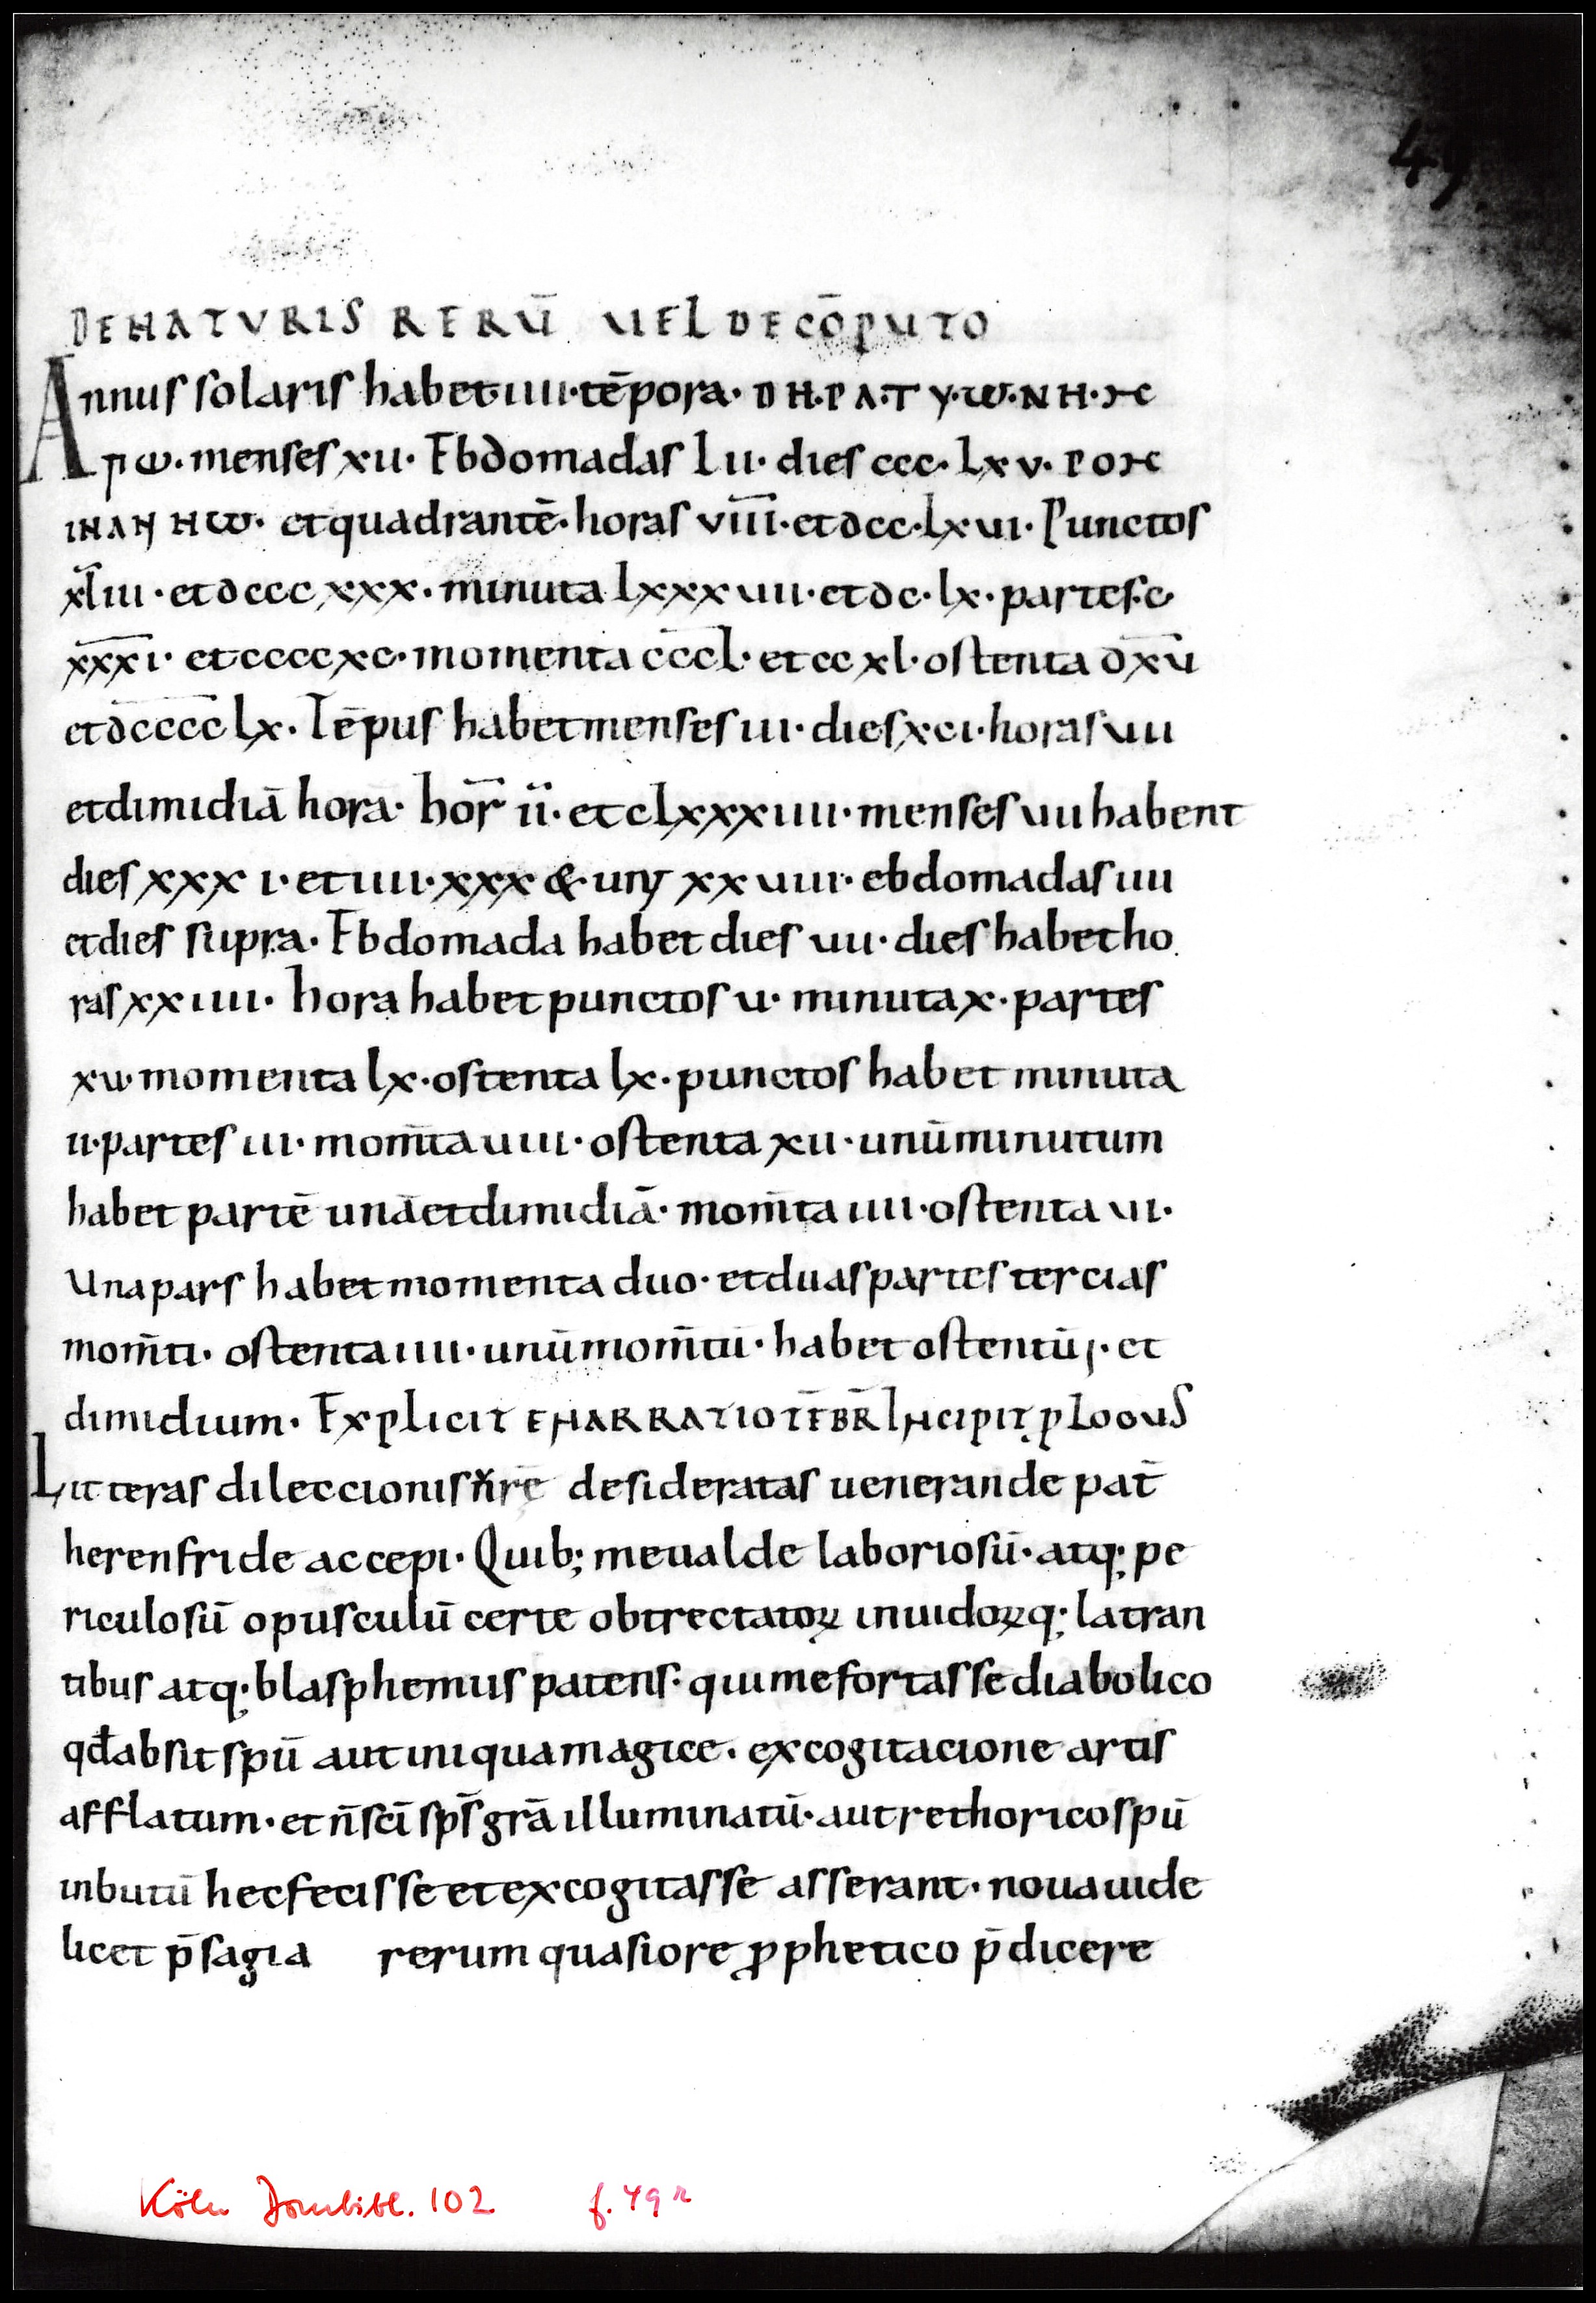 49
DE NATVRIS RERŪ UEL DE CŌPUTO
Annus solaris habet·iiii·tēpora· D H·P A·T Y·ω·N H·Ͻ-C
π ω·menses xii· Ebdomadas Lii· dies ccc·Lxv· P O Ͻ-C
IHAH Hω· et quadrantē·horas v̅i̅i̅i̅·et dcc·Lxvi· Punctos
x̅L̅iii·et dccc xxx· minuta Lxxxvii·et dc·lx·partes·c·
x̅x̅x̅i· et cccc xc· momenta c̅c̅c̅l̅· et cc xl· ostenta d̅x̅v̅
et dcccc Lx· Tēpus habet menses iii· dies xci·horas vii
et dimidiā horā· hor̄ ii· et cLxxxiiii· menses vii habent
dies xxx i· et iiii·xxx & un' xx viii· ebdomadas iiii
et dies supra· Ebdomada habet dies vii· dies habet ho
ras xxiiii· hora habet punctos v· minuta x· partes
xv·momenta lx·ostenta lx·punctos habet minuta
ii·partes iii· mom̄ta viii· ostenta xii·unū minutum
habet partē unā et dimidiā· mom̄ta iiii·ostenta vi·
Una pars habet momenta duo· et duas partes tercias
mom̄ti· ostenta iiii·unū mom̄tū·habet ostentū i· et
dimidium· Explicit ENARRATIO TĒBR̄ INcipit pLoovS
Litteras dileccionis n̄rę desideratas uenerande pat̄
herenfride accepi· Quib; me ualde laboriosū·atq; pe
riculosū opusculū certe obtrectatoꝝ inuidoꝝq; latran
tibus atq; blasphemus patens· qui me fortasse diabolico
qđ absit spū aut iniqua magice· excogitacione artis
afflatum·et n̄ sc̄i sp̄s grā illuminatū·aut rethorico spū
inbutū hec fecisse et excogitasse asserant·noua uide
licet p̄sagia rerum quasi ore ꝓphetico p̄dicere
Köln Dombibl. 102 f. 49r